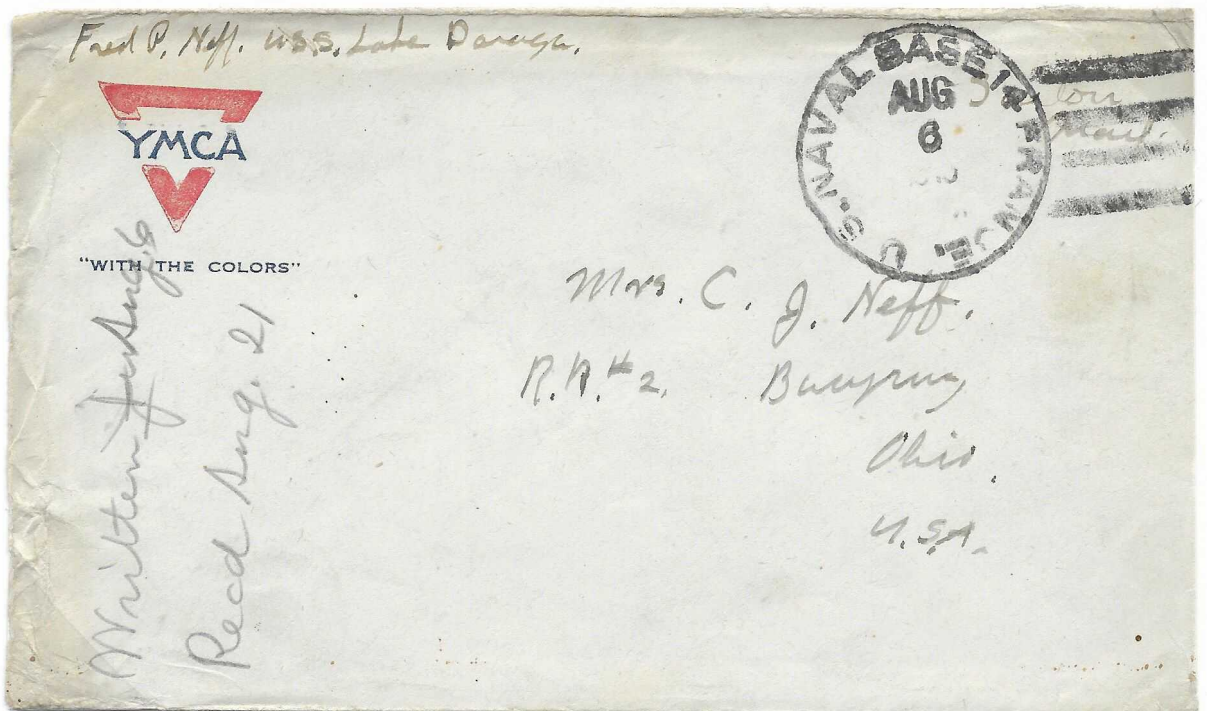 Fred P. Neff. U.S.S. Lake Daraga.
YMCA
"WITH THE COLORS"
U.S. NAVAL BASE 14 FRANCE.
AUG
6
Mail.
Mrs. C. J. Neff.
R.R.#2. Bucyrus
Ohio.
U.S.A.
Written Aug. 6
Recd Aug. 21